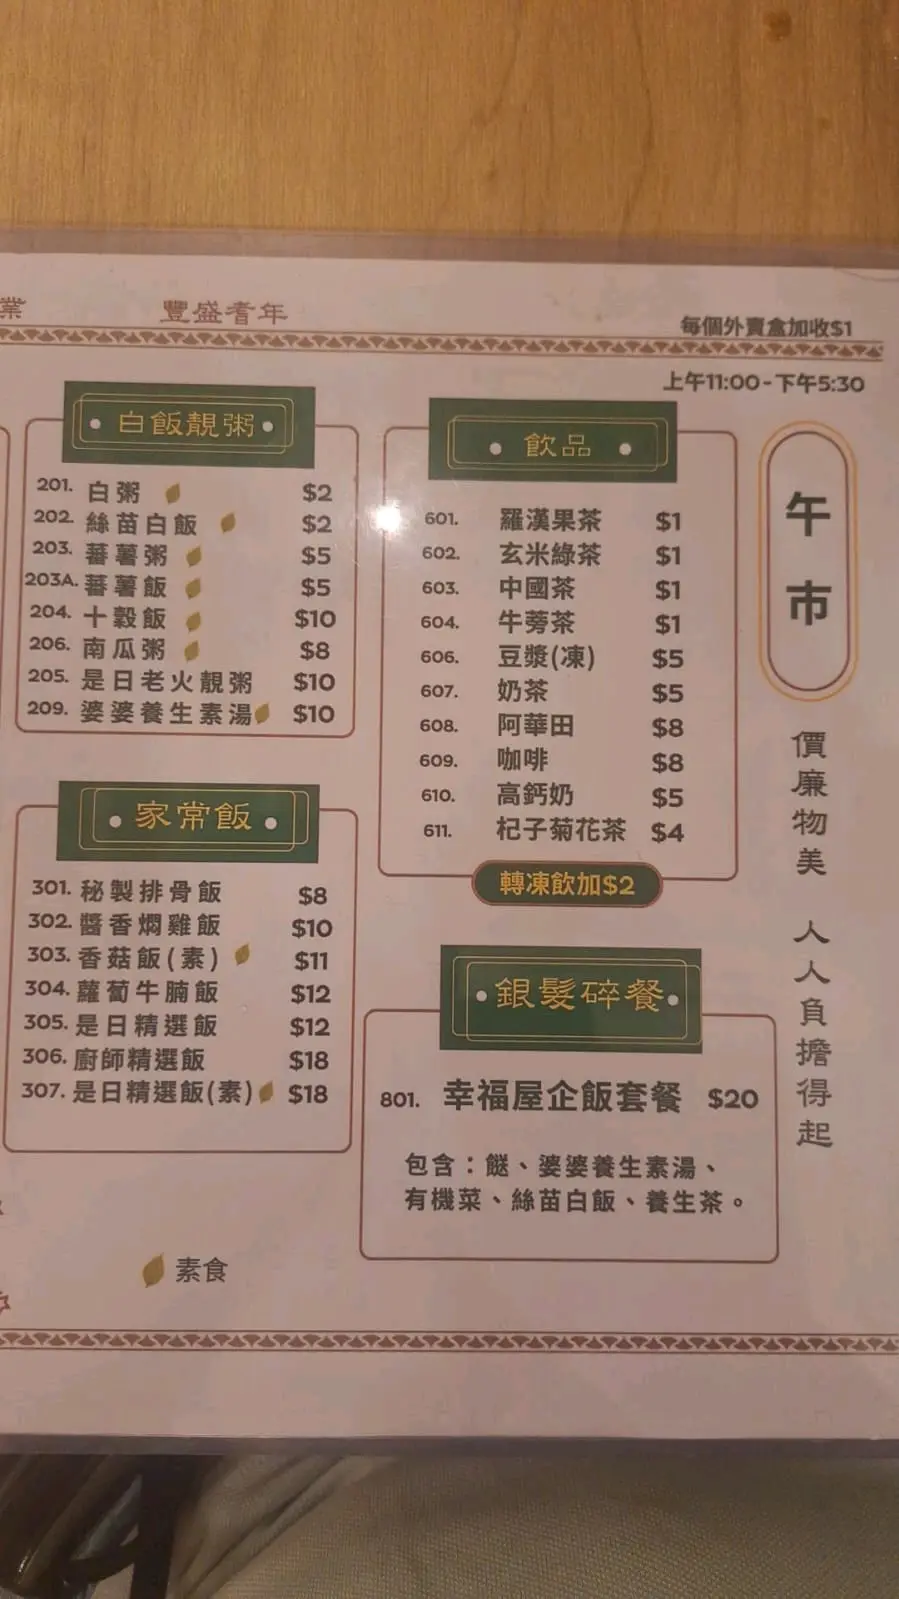 業 豐盛耆年
每個外賣盒加收$1
上午11:00-下午5:30
午市
價廉物美 人人負擔得起
白飯靚粥
201. 白粥 $2
202. 絲苗白飯 $2
203. 蕃薯粥 $5
203A. 蕃薯飯 $5
204. 十穀飯 $10
206. 南瓜粥 $8
205. 是日老火靚粥 $10
209. 婆婆養生素湯 $10
家常飯
301. 秘製排骨飯 $8
302. 醬香燜雞飯 $10
303. 香菇飯(素) $11
304. 蘿蔔牛腩飯 $12
305. 是日精選飯 $12
306. 廚師精選飯 $18
307. 是日精選飯(素) $18
素食
飲品
601. 羅漢果茶 $1
602. 玄米綠茶 $1
603. 中國茶 $1
604. 牛蒡茶 $1
606. 豆漿(凍) $5
607. 奶茶 $5
608. 阿華田 $8
609. 咖啡 $8
610. 高鈣奶 $5
611. 杞子菊花茶 $4
轉凍飲加$2
銀髮碎餐
801. 幸福屋企飯套餐 $20
包含：餸、婆婆養生素湯、
有機菜、絲苗白飯、養生茶。